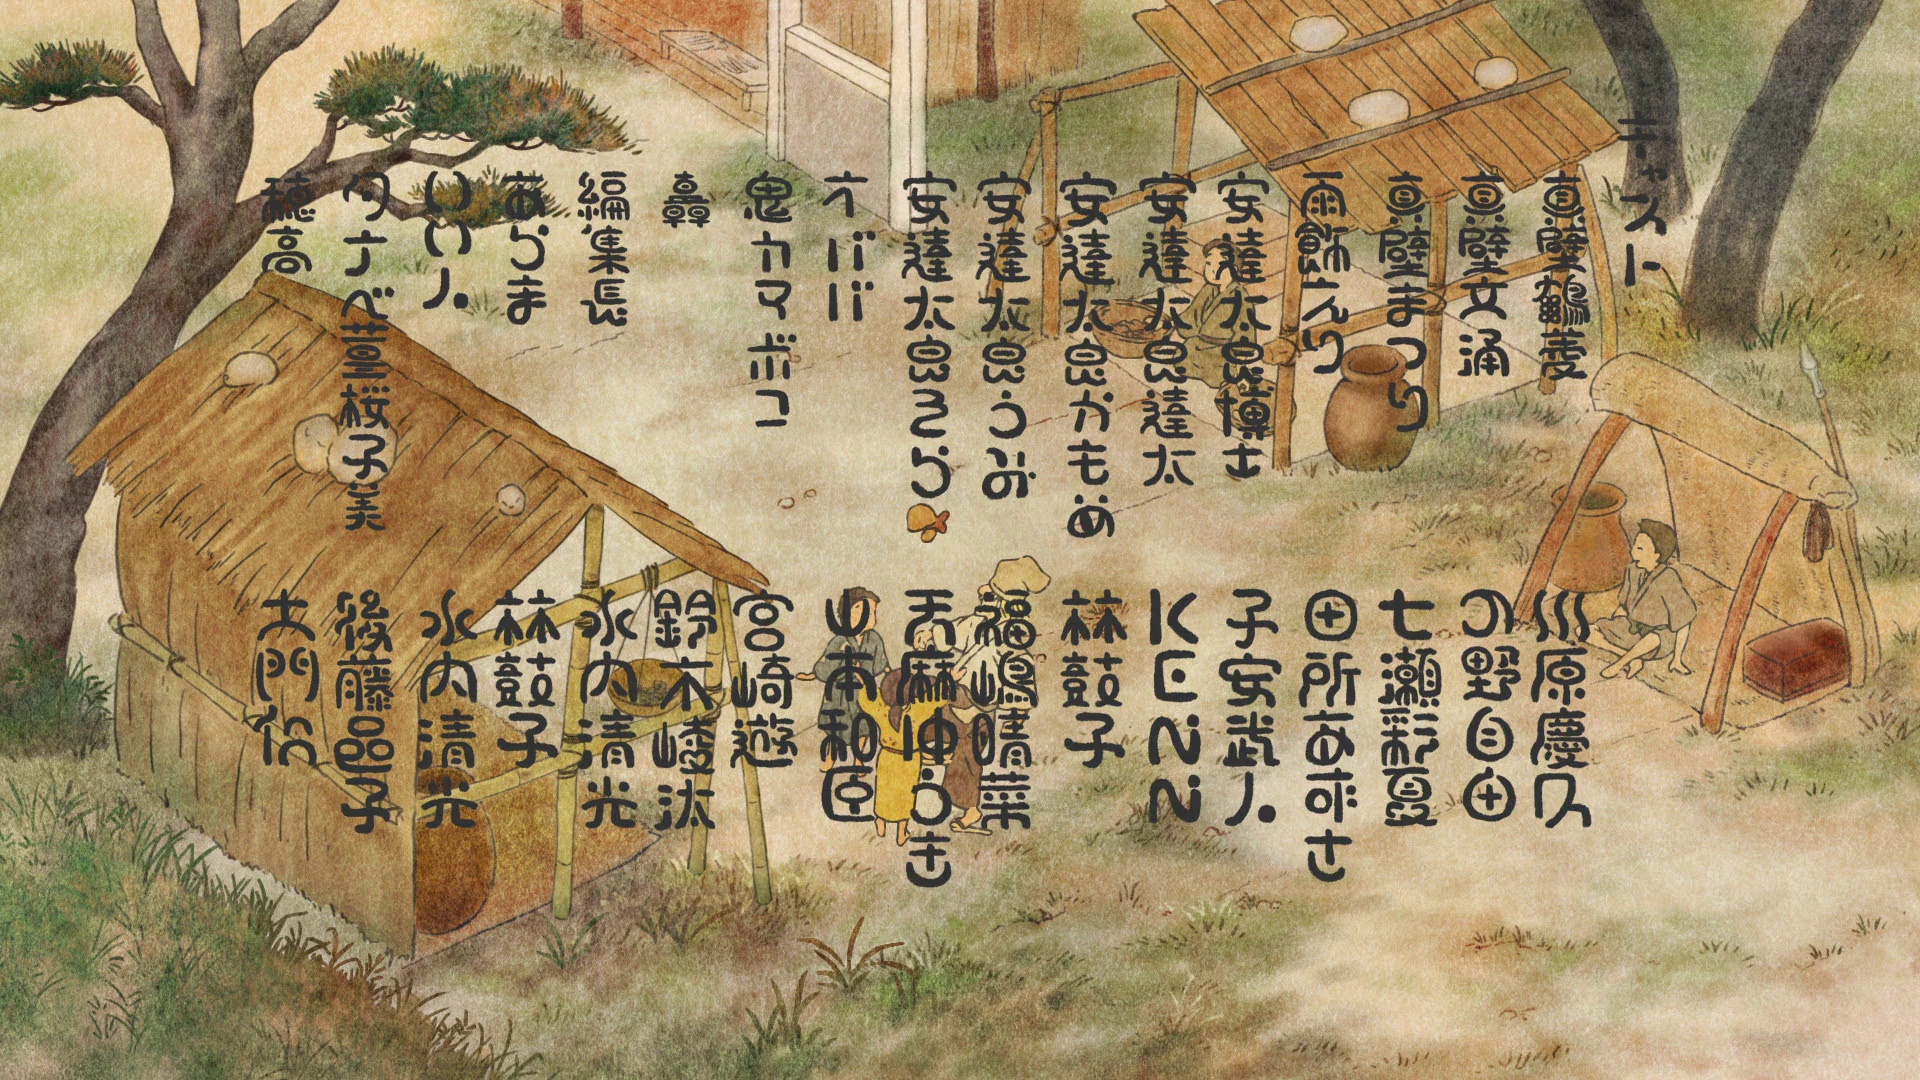 キャスト
真壁鶴菱　川原慶久
真壁文涌　小野自由
真壁まつり　七瀬彩夏
雨飾えり　田所あずさ
安達太良博士　子安武人
安達太良達太　KENN
安達太良かもめ　林鼓子
安達太良うみ　福嶋晴菜
安達太良そら　天麻ゆうき
オババ　山本和臣
鬼カマボコ　宮崎遊
轟　鈴木崚汰
編集長　水内清光
あらま　林鼓子
いい人　水内清光
タナベ菫桜子美　後藤邑子
穂高